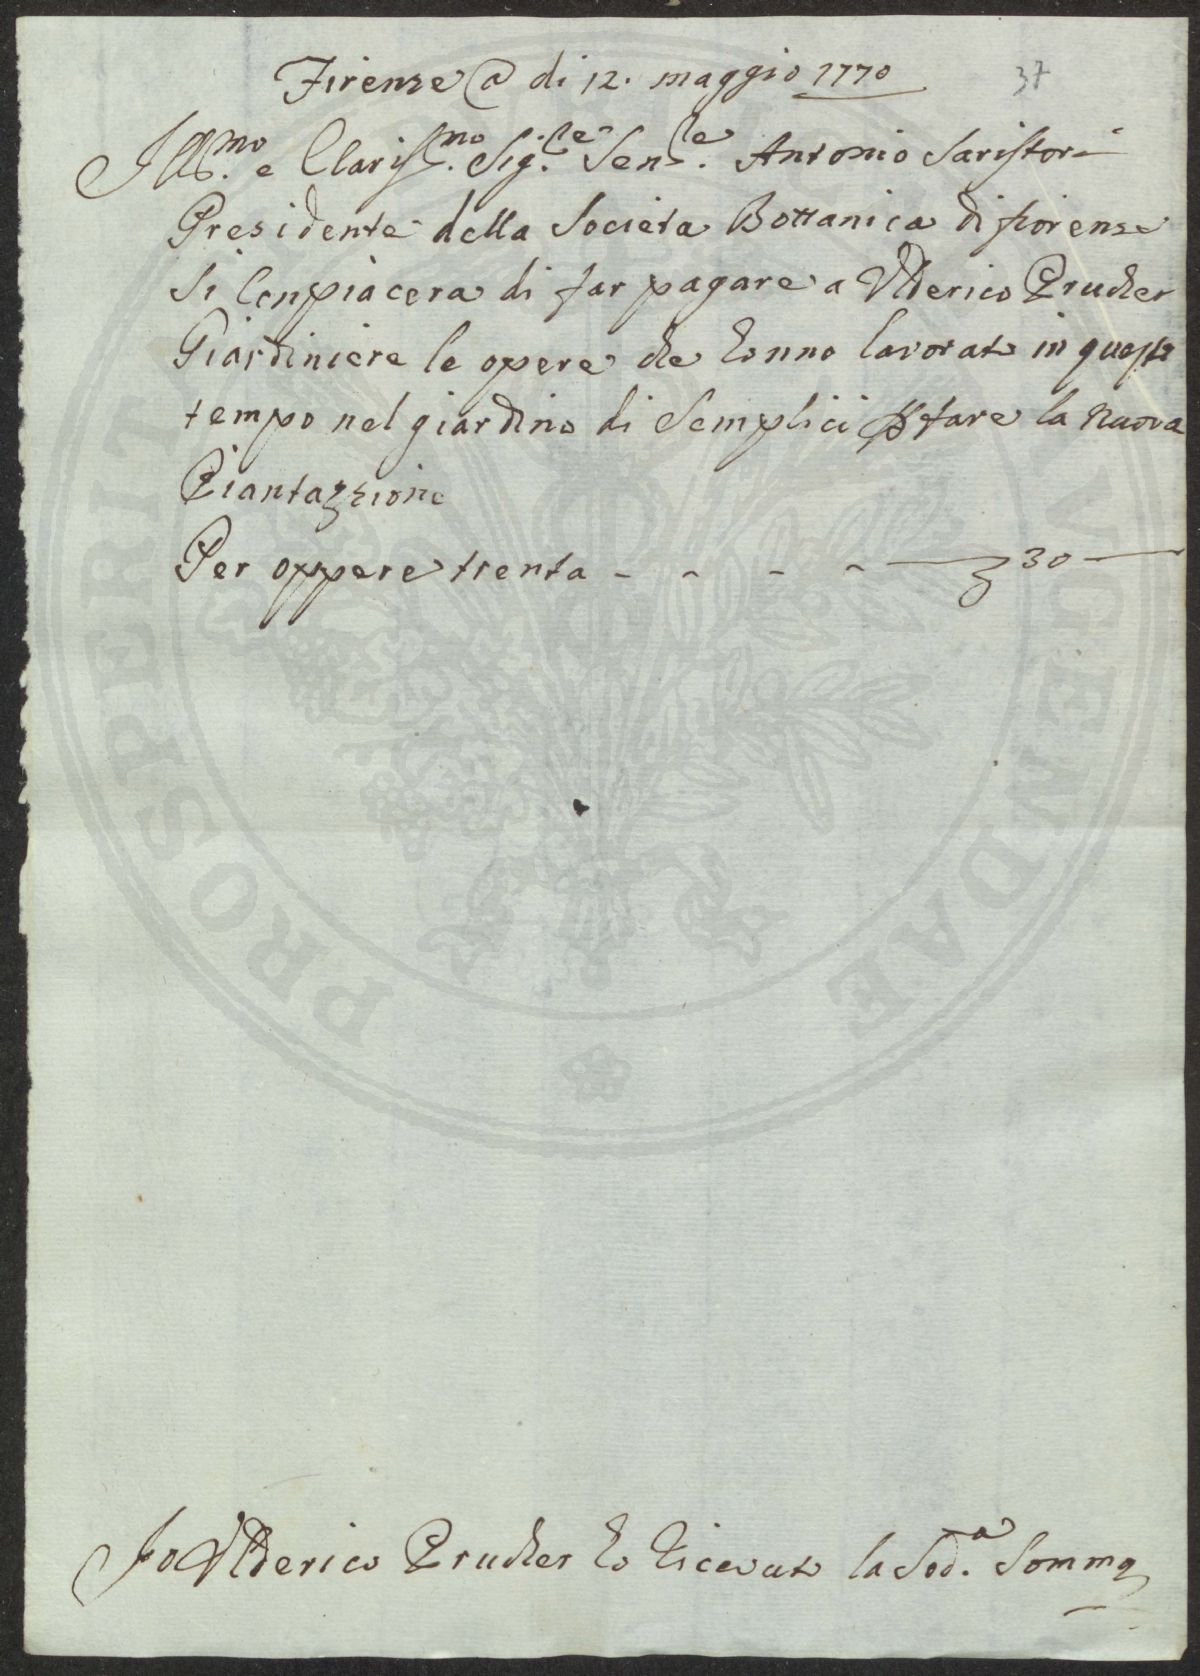 Firenze @ di 12. maggio 1770
37
Ill.mo e Clariss.mo Sig.re Sen.re Antonio Saristori
Presidente della Societa Bottanica di fiorenze
Si Conpiacera di far pagare a Ulderico Prucher
Giardiniere le opere che hanno lavorato in questo
tempo nel giardino di Semplici p fare la Nuova
Piantazzione
Per oppere trenta - - - - 30
Jo Ulderico Prucher ho Ricevuto la Sod.a Somma
PROSPERITATI AVGENDAE